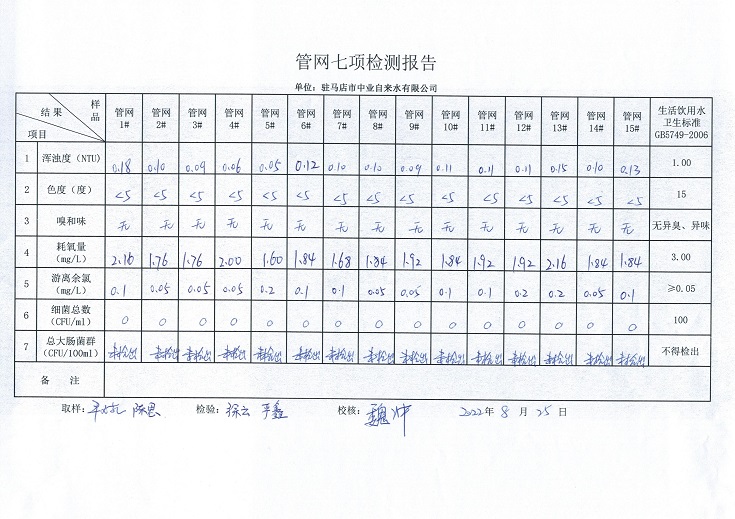 管网七项检测报告
单位：驻马店市中业自来水有限公司
样品 结果 项目 管网1# 管网2# 管网3# 管网4# 管网5# 管网6# 管网7# 管网8# 管网9# 管网10# 管网11# 管网12# 管网13# 管网14# 管网15# 生活饮用水卫生标准GB5749-2006
1 浑浊度（NTU） 0.18 0.10 0.09 0.06 0.05 0.12 0.10 0.10 0.09 0.11 0.11 0.11 0.15 0.10 0.13 1.00
2 色度（度） <5 <5 <5 <5 <5 <5 <5 <5 <5 <5 <5 <5 <5 <5 <5 15
3 嗅和味 无 无 无 无 无 无 无 无 无 无 无 无 无 无 无 无异臭、异味
4 耗氧量（mg/L） 2.16 1.76 1.76 2.00 1.60 1.84 1.68 1.84 1.92 1.84 1.92 1.92 2.16 1.84 1.84 3.00
5 游离余氯（mg/L） 0.1 0.05 0.05 0.05 0.2 0.1 0.1 0.05 0.05 0.1 0.1 0.2 0.2 0.05 0.1 ≥0.05
6 细菌总数（CFU/ml） 0 0 0 0 0 0 0 0 0 0 0 0 0 0 0 100
7 总大肠菌群（CFU/100ml） 未检出 未检出 未检出 未检出 未检出 未检出 未检出 未检出 未检出 未检出 未检出 未检出 未检出 未检出 未检出 不得检出
备 注
取样： 陈恩 检验：徐云 平鑫 校核：魏冲 2022年8月25日